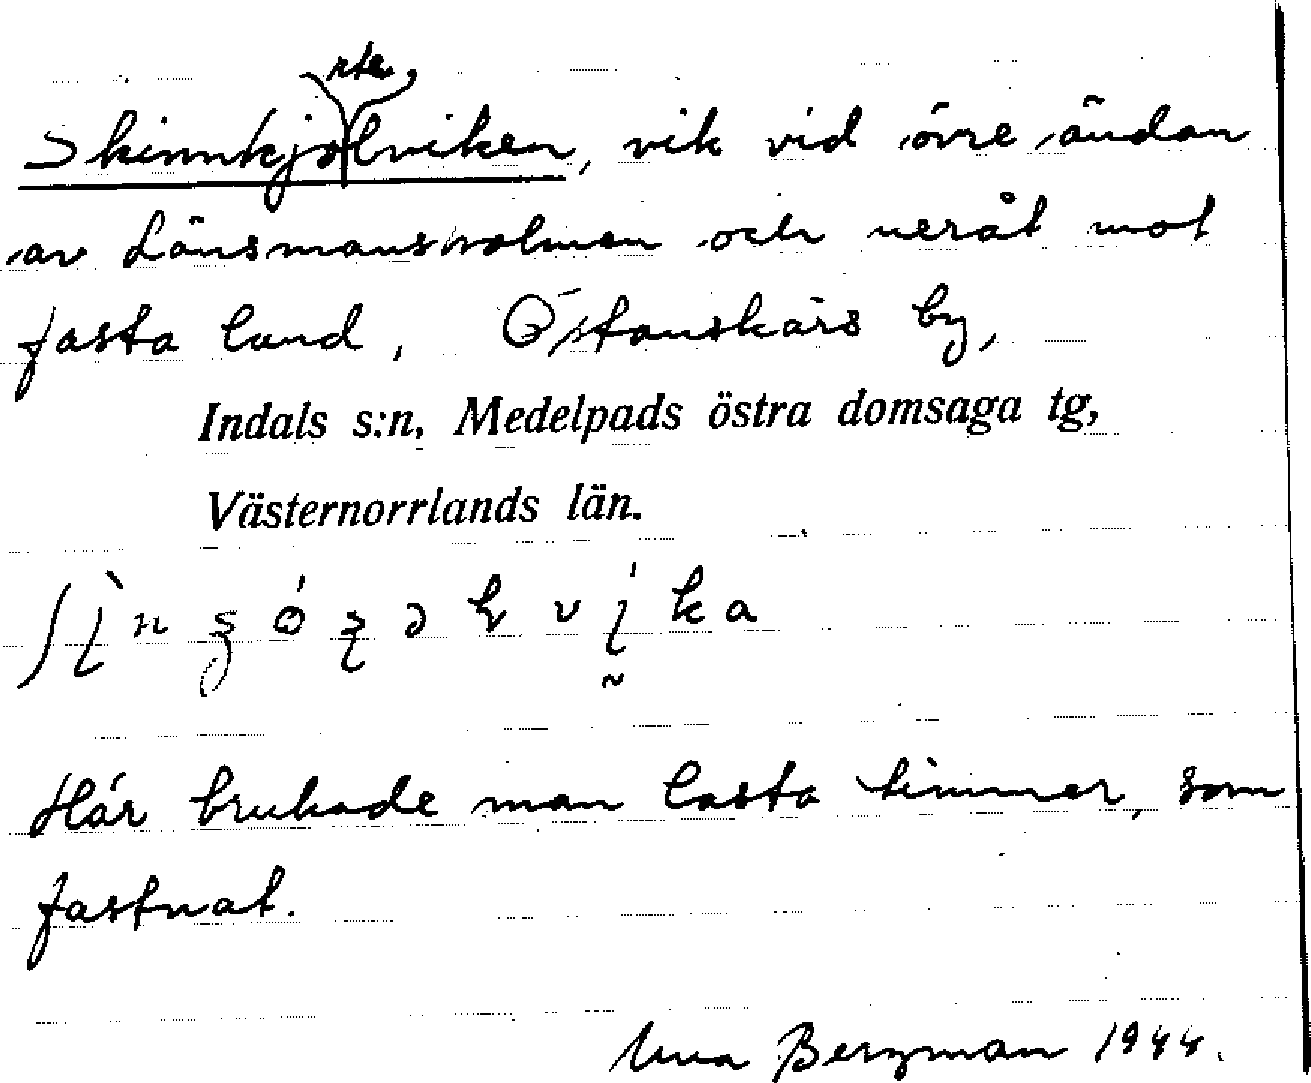 rte
Skinnkjolviken, vik vid övre ändan
av Länsmansholmen och neråt mot
fasta land, Östanskärs by,
Indals s:n, Medelpads östra domsaga tg,
Västernorrlands län.
Här brukade man lasta timmer, som
fastnat.
Bergman 1944.